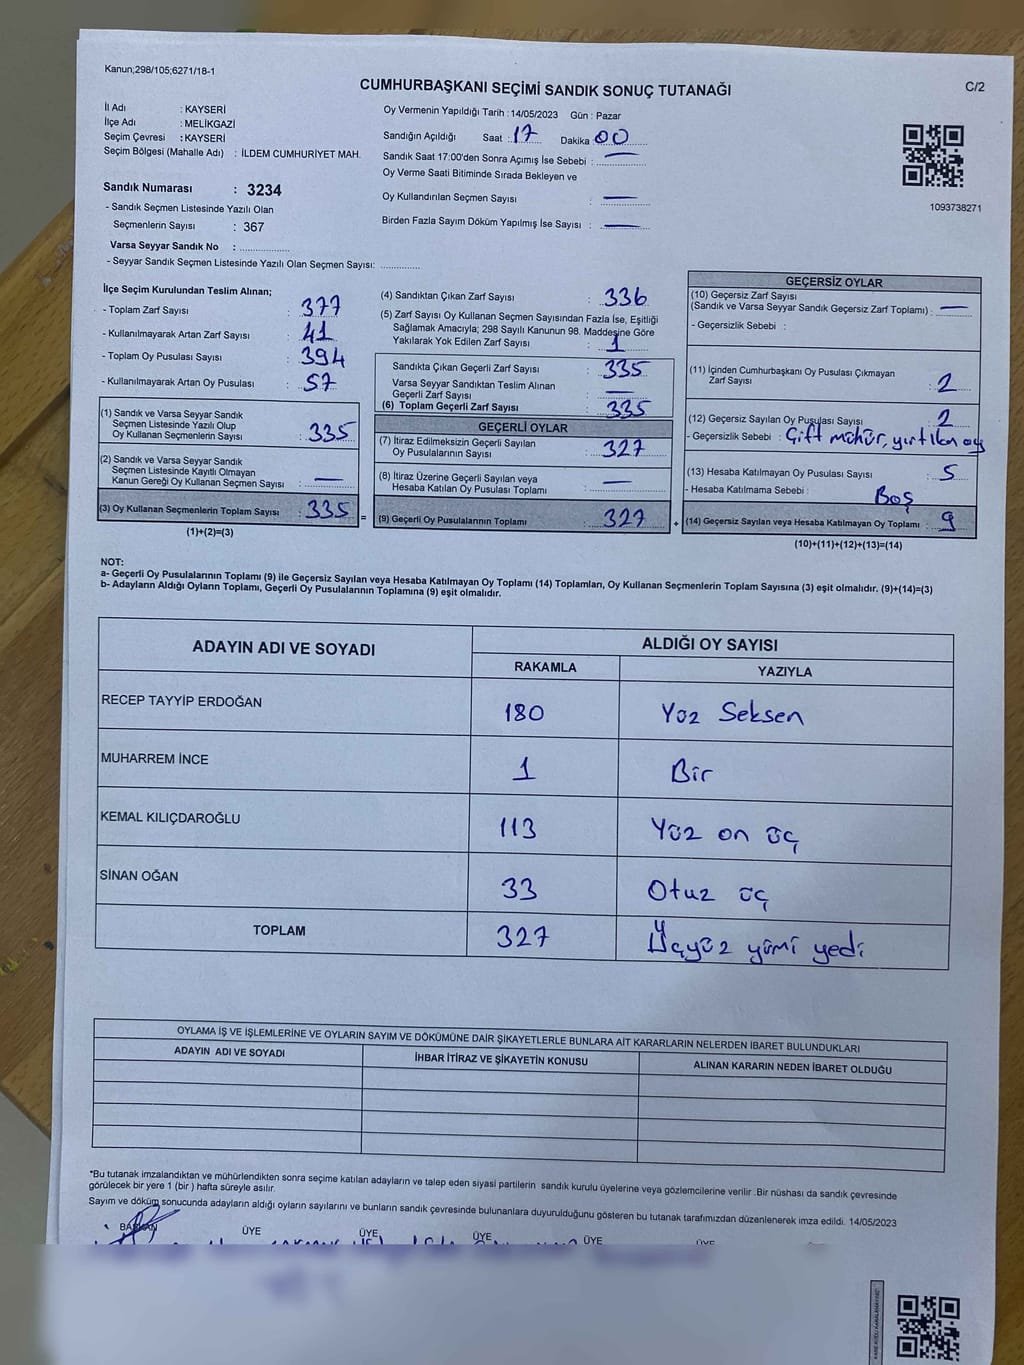 Kanun;298/105;6271/18-1
CUMHURBAŞKANI SEÇİMİ SANDIK SONUÇ TUTANAĞI
C/2
İl Adı : KAYSERİ
İlçe Adı : MELİKGAZİ
Seçim Çevresi : KAYSERİ
Seçim Bölgesi (Mahalle Adı) : İLDEM CUMHURİYET MAH.
Sandık Numarası : 3234
- Sandık Seçmen Listesinde Yazılı Olan
Seçmenlerin Sayısı : 367
Varsa Seyyar Sandık No : ................
- Seyyar Sandık Seçmen Listesinde Yazılı Olan Seçmen Sayısı: .............
Oy Vermenin Yapıldığı Tarih : 14/05/2023 Gün : Pazar
Sandığın Açıldığı Saat : 17 Dakika : 00
Sandık Saat 17:00'den Sonra Açımış İse Sebebi : —
Oy Verme Saati Bitiminde Sırada Bekleyen ve
Oy Kullandırılan Seçmen Sayısı : —
Birden Fazla Sayım Döküm Yapılmış İse Sayısı : —
1093738271
İlçe Seçim Kurulundan Teslim Alınan;
- Toplam Zarf Sayısı : 377
- Kullanılmayarak Artan Zarf Sayısı : 41
- Toplam Oy Pusulası Sayısı : 394
- Kullanılmayarak Artan Oy Pusulası : 57
(1) Sandık ve Varsa Seyyar Sandık
Seçmen Listesinde Yazılı Olup
Oy Kullanan Seçmenlerin Sayısı : 335
(2) Sandık ve Varsa Seyyar Sandık
Seçmen Listesinde Kayıtlı Olmayan
Kanun Gereği Oy Kullanan Seçmen Sayısı : —
(3) Oy Kullanan Seçmenlerin Toplam Sayısı : 335
(1)+(2)=(3)
=
(4) Sandıktan Çıkan Zarf Sayısı : 336
(5) Zarf Sayısı Oy Kullanan Seçmen Sayısından Fazla İse, Eşitliği
Sağlamak Amacıyla; 298 Sayılı Kanunun 98. Maddesine Göre
Yakılarak Yok Edilen Zarf Sayısı : 1
Sandıkta Çıkan Geçerli Zarf Sayısı : 335
Varsa Seyyar Sandıktan Teslim Alınan
Geçerli Zarf Sayısı : —
(6) Toplam Geçerli Zarf Sayısı : 335
GEÇERLİ OYLAR
(7) İtiraz Edilmeksizin Geçerli Sayılan
Oy Pusulalarının Sayısı : 327
(8) İtiraz Üzerine Geçerli Sayılan veya
Hesaba Katılan Oy Pusulası Toplamı : —
(9) Geçerli Oy Pusulalarının Toplamı : 327
+
GEÇERSİZ OYLAR
(10) Geçersiz Zarf Sayısı
(Sandık ve Varsa Seyyar Sandık Geçersiz Zarf Toplamı) : —
- Geçersizlik Sebebi :
(11) İçinden Cumhurbaşkanı Oy Pusulası Çıkmayan
Zarf Sayısı : 2
(12) Geçersiz Sayılan Oy Pusulası Sayısı : 2
- Geçersizlik Sebebi : Çift mühür, yırtılan oy
(13) Hesaba Katılmayan Oy Pusulası Sayısı : 5
- Hesaba Katılmama Sebebi : Boş
(14) Geçersiz Sayılan veya Hesaba Katılmayan Oy Toplamı : 9
(10)+(11)+(12)+(13)=(14)
NOT:
a- Geçerli Oy Pusulalarının Toplamı (9) ile Geçersiz Sayılan veya Hesaba Katılmayan Oy Toplamı (14) Toplamları, Oy Kullanan Seçmenlerin Toplam Sayısına (3) eşit olmalıdır. (9)+(14)=(3)
b- Adayların Aldığı Oyların Toplamı, Geçerli Oy Pusulalarının Toplamına (9) eşit olmalıdır.
ADAYIN ADI VE SOYADI ALDIĞI OY SAYISI
RAKAMLA YAZIYLA
RECEP TAYYİP ERDOĞAN 180 Yüz Seksen
MUHARREM İNCE 1 Bir
KEMAL KILIÇDAROĞLU 113 Yüz on üç
SİNAN OĞAN 33 Otuz üç
TOPLAM 327 Üçyüz yimi yedi
OYLAMA İŞ VE İŞLEMLERİNE VE OYLARIN SAYIM VE DÖKÜMÜNE DAİR ŞİKAYETLERLE BUNLARA AİT KARARLARIN NELERDEN İBARET BULUNDUKLARI
ADAYIN ADI VE SOYADI İHBAR İTİRAZ VE ŞİKAYETİN KONUSU ALINAN KARARIN NEDEN İBARET OLDUĞU
*Bu tutanak imzalandıktan ve mühürlendikten sonra seçime katılan adayların ve talep eden siyasi partilerin sandık kurulu üyelerine veya gözlemcilerine verilir .Bir nüshası da sandık çevresinde
görülecek bir yere 1 (bir ) hafta süreyle asılır.
Sayım ve döküm sonucunda adayların aldığı oyların sayılarını ve bunların sandık çevresinde bulunanlara duyurulduğunu gösteren bu tutanak tarafımızdan düzenlenerek imza edildi. 14/05/2023
BAŞKAN ÜYE ÜYE ÜYE ÜYE ÜYE